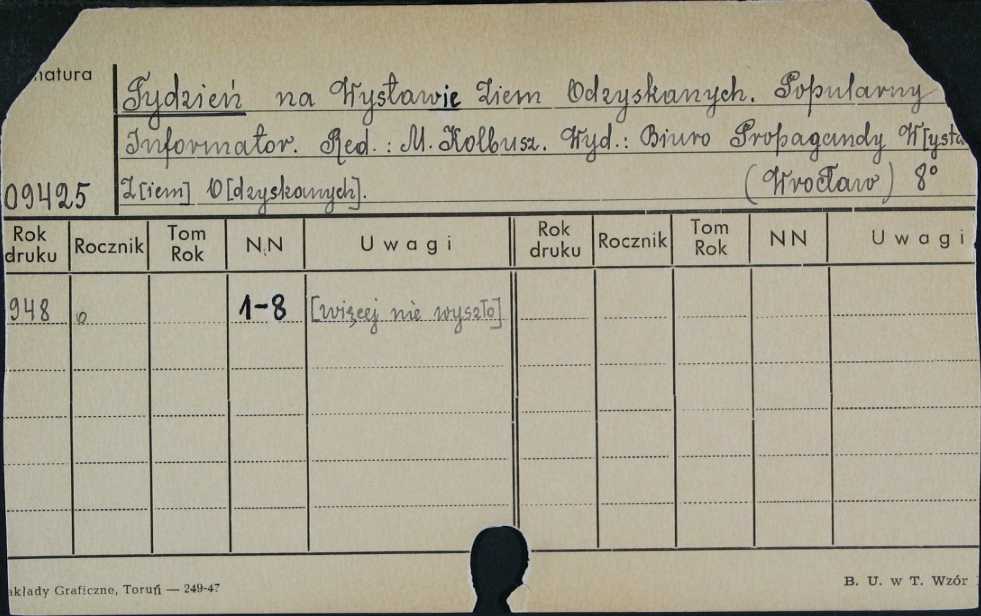 natura
Tydzień na Wystawie Ziem Odzyskanych. Popularny
Informator. Red.: M. Kolbusz. Wyd.: Biuro Propagandy W[ysta
09425 Z[iem] O[dzyskanych]. (Wrocław) 8°
Rok druku Rocznik Tom Rok N.N Uwagi Rok druku Rocznik Tom Rok NN Uwagi
948 o 1-8 [więcej nie wyszło]
akłady Graficzne, Toruń — 249-47 B. U. w T. Wzór